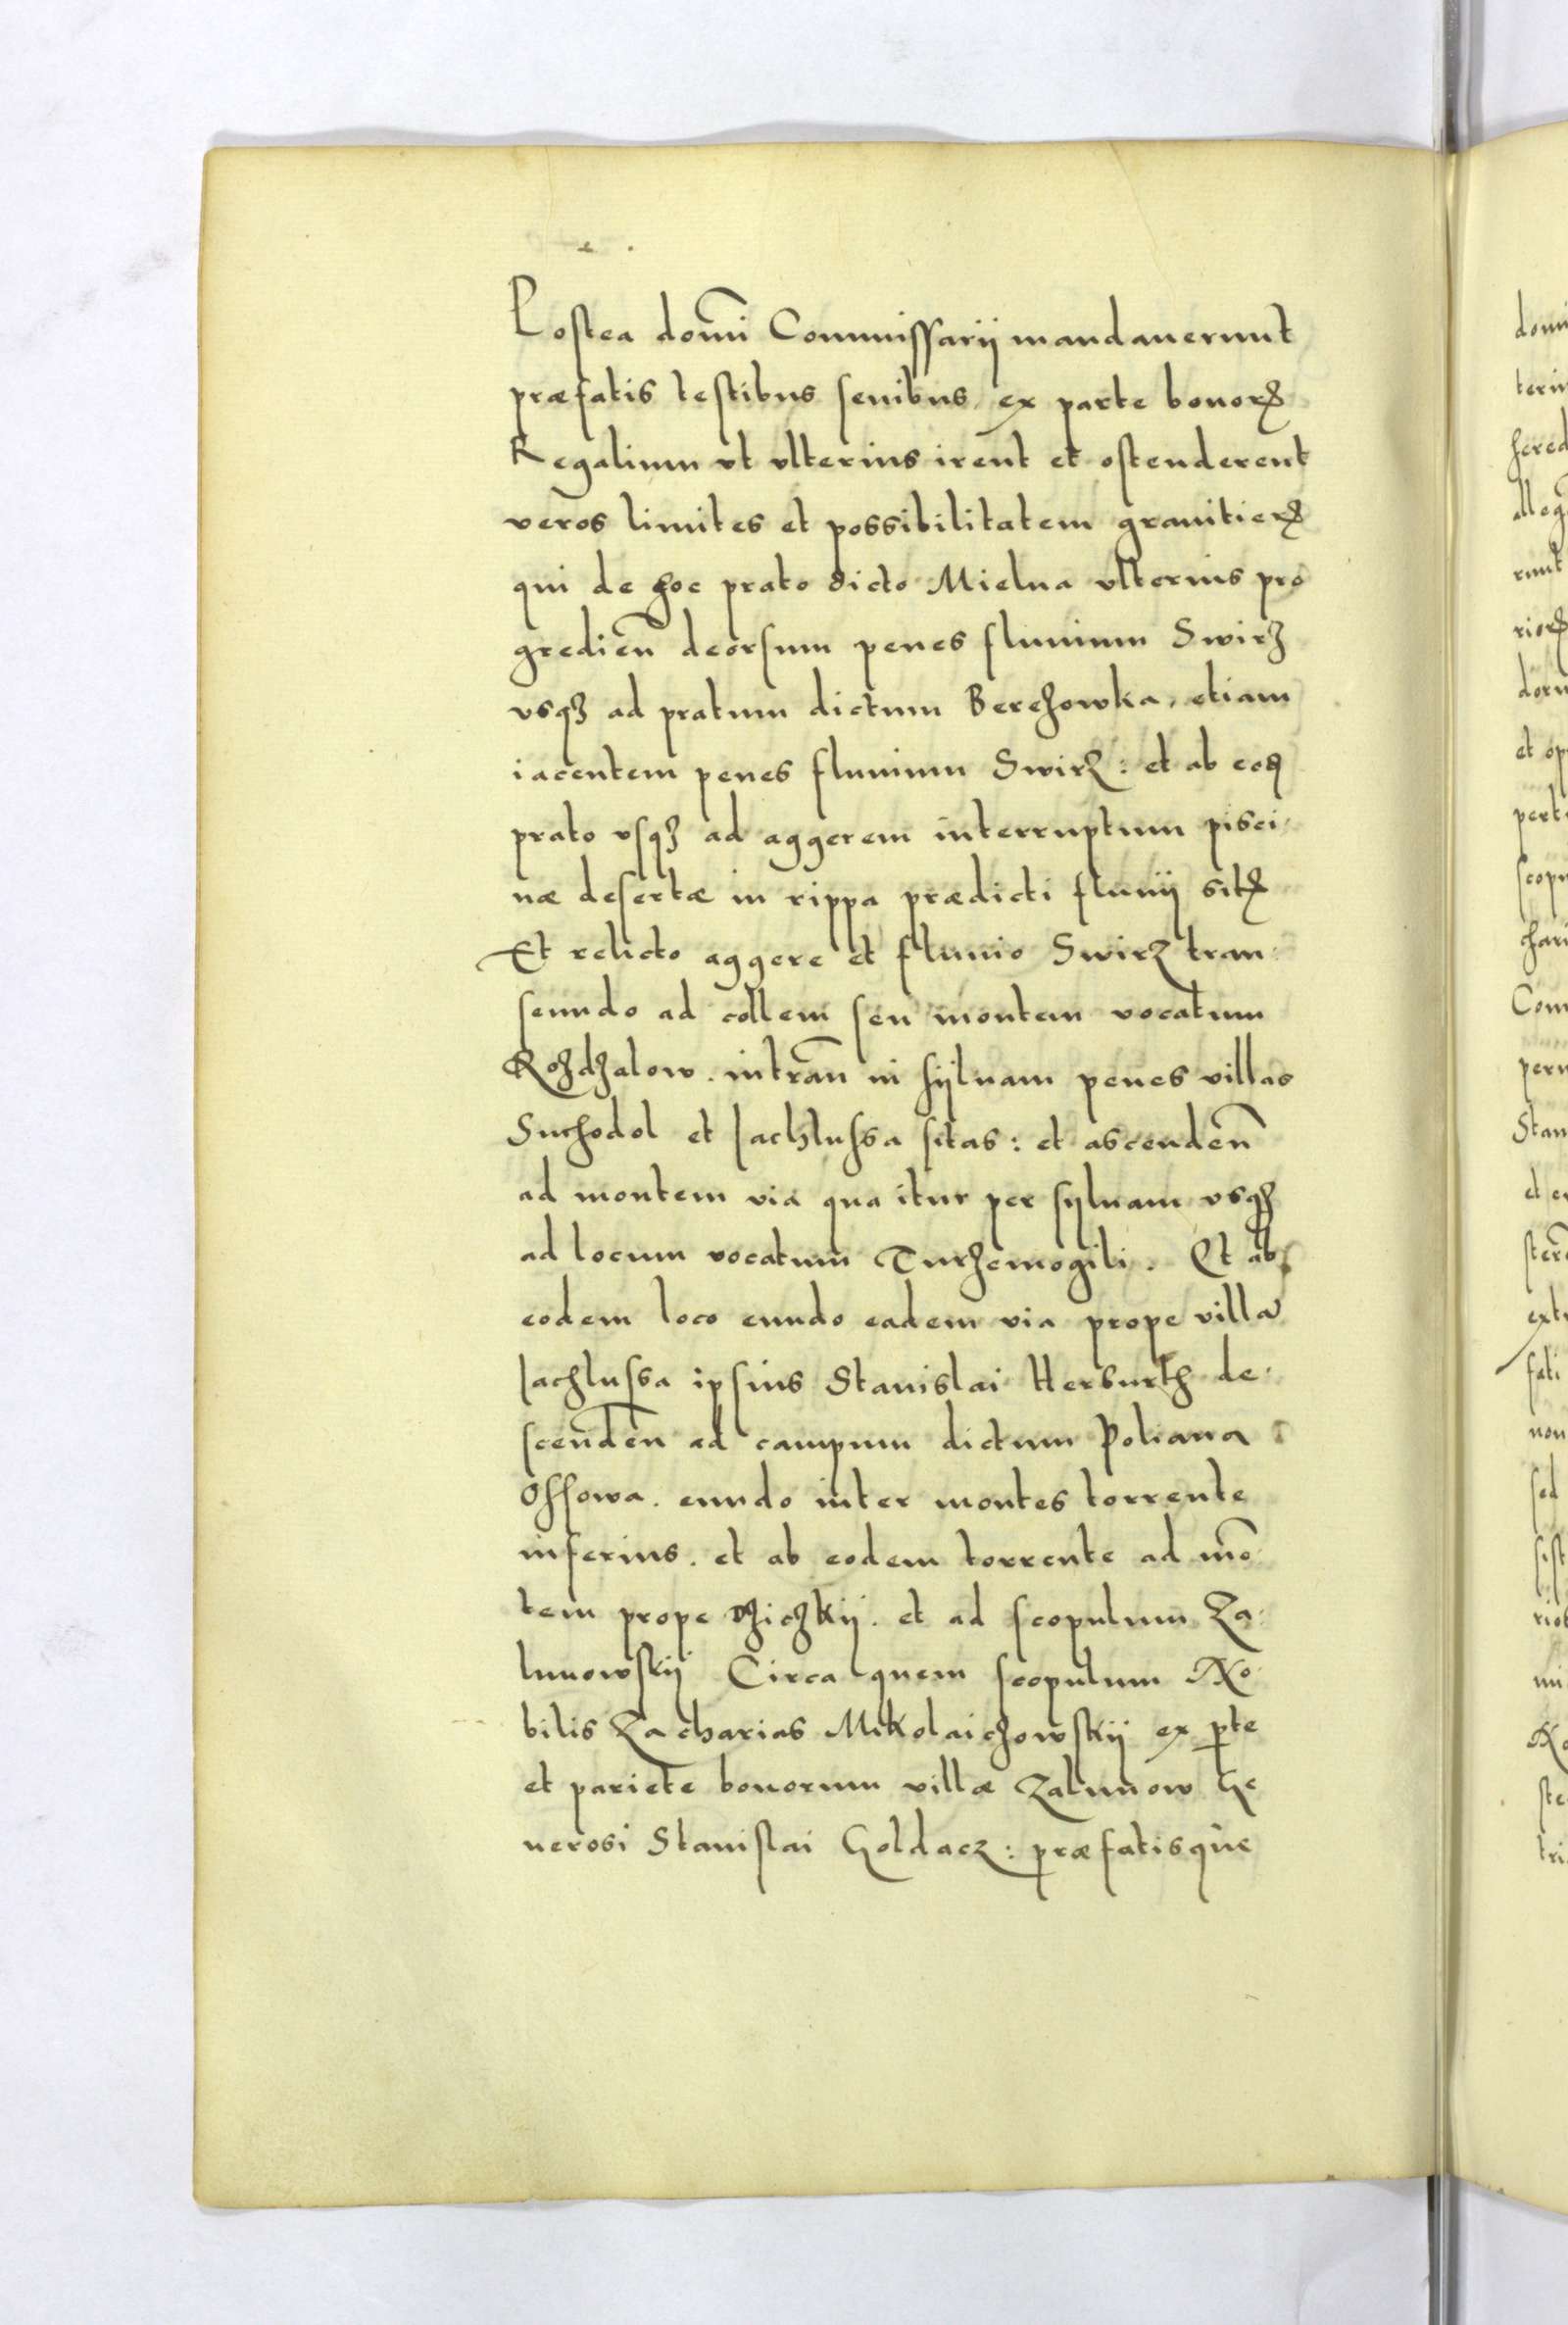 Postea dom̃i Commissarij mandauerunt
præfatis testibus senibus ex parte bonorꝝ
Regalium vt vlterius irent et ostenderent
veros limites et possibilitatem granitierꝝ
qui de hoc prato dicto Mielna vlterius pro
gredien̄ deorsum penes fluuium Swirz
vsqꝫ ad pratum dictum Berezowka, etiam
iacentem penes fluuium Swirz : et ab eod
prato vsqꝫ ad aggerem interruptum pisci-
næ desertæ in rippa prædicti fluuij sitꝝ
Et relicto aggere et fluuio Swirz tran-
seundo ad collem seu montem vocatum
Rozdzalow. intran̄ in syluam penes villas
Suchodol et Jachlussa sitas : et ascenden̄
ad montem via qua itur per syluam vsqꝫ
ad locum vocatum Turzemogili. Et ab
eodem loco eundo eadem via prope villã
Jachlussa ipsius Stanislai Herburth de-
scenden̄ ad campum dictum Poliana
Ossowa. eundo inter montes torrente
inferius. et ab eodem torrente ad mõ-
tem prope Dziczkij. et ad scopulum Za-
lunowskij Circa quem scopulum No-
bilis Zacharias Mikolaiczowskij ex ꝑte
et pariete bonorum villæ Zalunow Ge
nerosi Stanislai Goldacz : præfatisque
domi
terin
hered
alleg
runt
riorꝝ
dorn
et op
perti
scopu
chari
Com
peru
Stan
et e
sterẽ
extr
fati
non
sed
sist
riob
mi
No
ste
tri